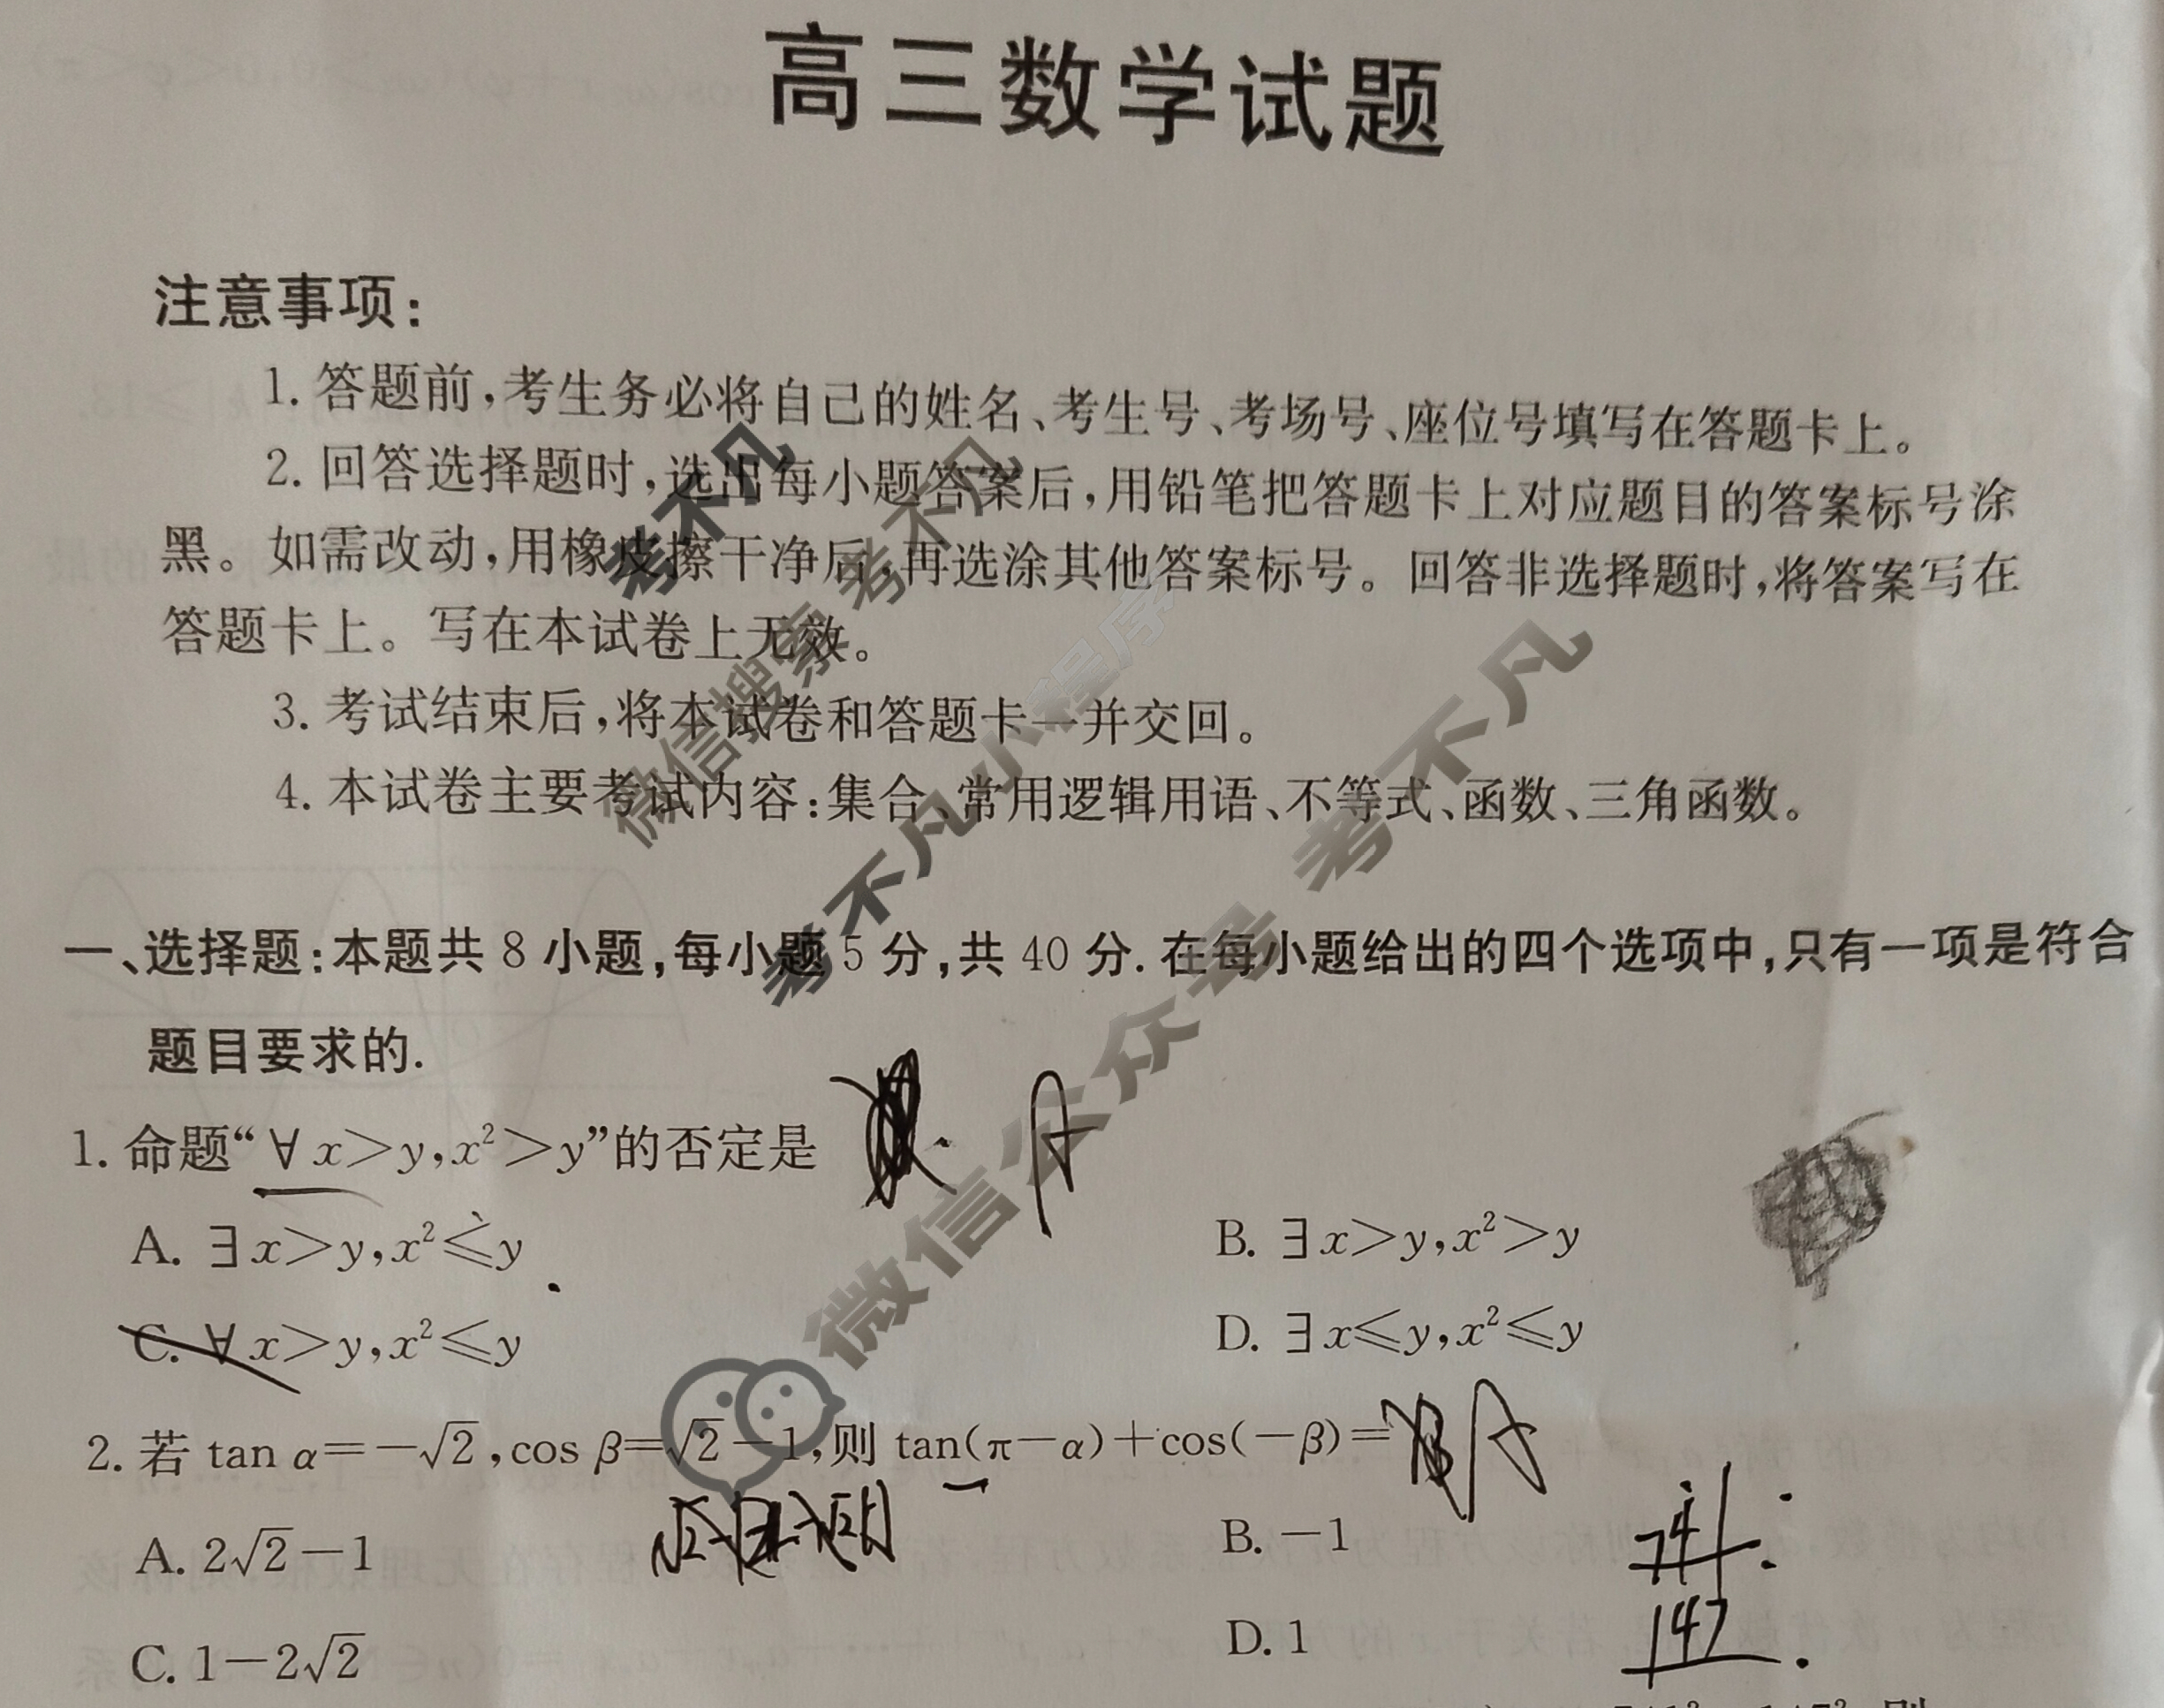 高三数学试题
注意事项:
1. 答题前,考生务必将自己的姓名、考生号、考场号、座位号填写在答题卡上。
2. 回答选择题时,选出每小题答案后,用铅笔把答题卡上对应题目的答案标号涂
黑。如需改动,用橡皮擦干净后,再选涂其他答案标号。回答非选择题时,将答案写在
答题卡上。写在本试卷上无效。
3. 考试结束后,将本试卷和答题卡一并交回。
4. 本试卷主要考试内容:集合、常用逻辑用语、不等式、函数、三角函数。
考不凡
微信搜索 考不凡
考不凡小程序
微信公众号 考不凡
一、选择题:本题共 8 小题,每小题 5 分,共 40 分. 在每小题给出的四个选项中,只有一项是符合
题目要求的.
1. 命题“∀x>y,x²>y”的否定是 A
A. ∃x>y,x²≤y
B. ∃x>y,x²>y
C. ∀x>y,x²≤y
D. ∃x≤y,x²≤y
2. 若 tan α=-√2,cos β=√2-1,则 tan(π-α)+cos(-β)= A
A. 2√2-1
B. -1
C. 1-2√2
D. 1
741
147